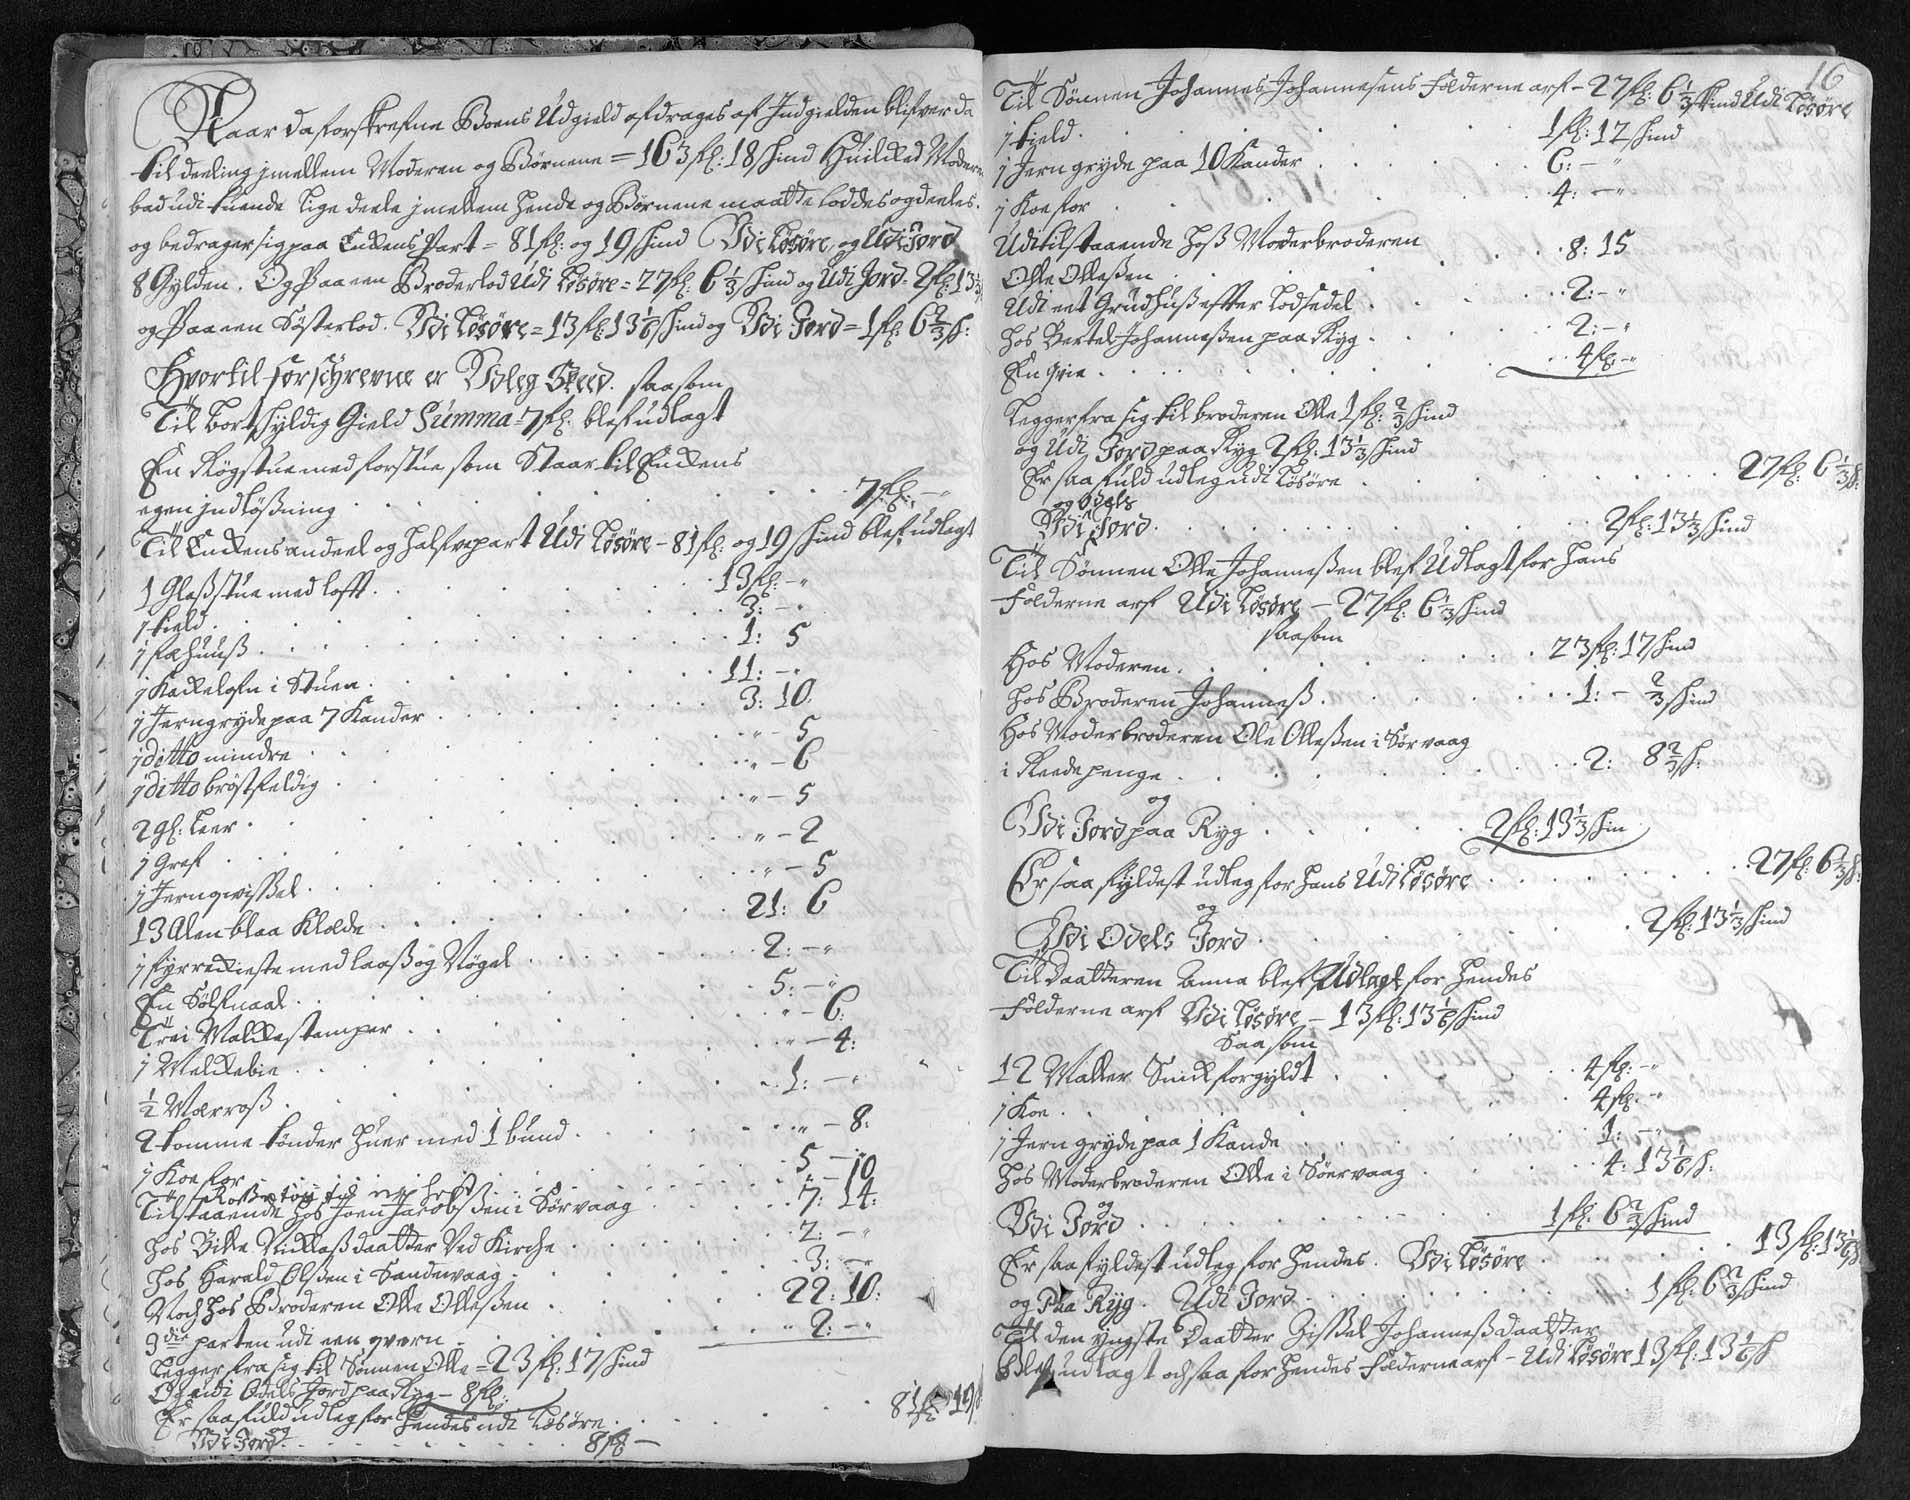 Naar da forskrefne Boens Udgield afdrages af Indgielden blifver da
til deeling jmellem Moderen og Børnene = 163 fl: 18 skind Huilcked Moderen
bad udi tuende lige deele jmellem hende og Børnene maatte loddes og deeles.
og bedrager sig paa Enckens Part = 81 fl: og 19 skind Udi Løsøre, og Udi Jord
8 Gylden. Og Paa een Broderlod Udi Løsøre = 27 fl: 6 1/3 skind og Udi Jord = 2 fl: 13 1/3
og Paa een Søsterlod. Udi Løsøre = 13 fl 13 1/6 skind og Udi Jord = 1 fl: 6 2/3 s:
Hvortil forschrevne er Udleg Skeed. saasom
Til bort skyldig Gield Summa = 7 fl. blef udlagt
En Røgstue med forstue som Staar til Enckens
egen jndløsning . . . 7 fl: - "
Til Enckens andeel og halfvepart Udi Løsøre - 81 fl: og 19 skind blef udlagt
1 Glasstue med lofft . . . 13 fl: - "
1 kield . . . 3: - "
j fæhuus . . . 1: 5
j Kackelofn i Stuen . . . 11: - "
j Jerngryde paa 7 Kander . . . 3: 10
j ditto mindre . . . " - 5
j ditto brøstfeldig . . . " - 6
2 gl: Leer . . . " - 5
j Gref . . . " - 2
j Jerngvissel . . . " - 5
13 Alen blaa Klæde . . . 21: 6
j fyrrekieste med laas og Nøgel . . . 2: - "
En Sølfnaal . . . 5: - "
Trei Melckestamper . . . " - 6:
j Melckebie . . . " - 4:
1/2 Mærros . . . 1: - "
2 tomme tønder huer med 1 bund . . . " - 8:
j Koe for . . . 5 - "
. . . " - 10
Tilstaaende hos Joen Jacobsen i Sørvaag . . . 7: 14:
hos Bille Nicklasdaatter Ved Kirche . . . 2: - "
hos Harald Olsen i Sandevaag . . . 3: - "
Noch hos Broderen Olle Ollesen . . . 22: 10:
3die parten udi een qvern . . . " 2: - "
Legger fra sig til Sønnen Olle = 23 fl: 17 skind
Og udi Odels Jord paa Ryg - 8 fl:
Er saa fuld udleg for hendes udi Løsøre . . . 81 fl: 19 s
og
Udi Jord . . . 8 fl -
16
Til Sønnen Johannes Johannesens Fæderne arf - 27 fl: 6 1/3 skind Udi Løsøre
j kield . . . 1 fl: 17 skind
j Jern gryde paa 10 Kander . . . 6: - "
j Koe for . . . 4: - "
Udi tilstaaende hos Moderbroderen
Olle Ollesen . . . 8: 15
Udi eet Grudhus effter Lodsedel . . . 2: - "
hos Bertel Johannesen paa Ryg . . . 2: - "
En Qvie . . . 4 fl - "
Legger fra sig til broderen Olle 1 fl: 2/3 skind
og Udi Jord paa Ryg 2 fl: 13 1/3 skind
Er saa fuld udleg udi Løsøre . . . 27 fl: 6 1/3 s:
og Odels
Udi Jord . . . 2 fl: 13 1/3 skind
Til Sønnen Olle Johannesen blef Udlagt for hans
Fæderne arf Udi Løsøre - 27 fl: 6 1/3 skind
saasom
Hos Moderen . . . 23 fl: 17 skind
hos Broderen Johannes . . . 1: - 2/3 skind
Hos Moderbroderen Ole Ollesen i Sørvaag
i Reede penge . . . 2: 8 2/3 s:
og
Udi Jord paa Ryg . . . 2 fl: 13 1/3 skin
Er saa fyldest udleg for hans Udi Løsøre . . . 27 fl: 6 1/3 s:
og
Udi Odels Jord . . . 2 fl: 13 1/3 skind
Til Daatteren Anna blef Udlagt for hendes
Fæderne arf Udi Løsøre - 13 fl: 13 1/6 skind
Saasom
12 Maller Smickforgyldt . . . 4 fl: - "
j Koe . . . 4 fl: - "
j Jern gryde paa 1 Kande . . . 1: - "
hos Moderbroderen Olle i Søervaag . . . 4: 13 1/6 s:
og
Udi Jord . . . 1 fl: 6 2/3 skind
Er saa fyldest udleg for hendes. Udi Løsøre . . . 13 fl: 13 1/6 s
og Paa Ryg. Udi Jord . . . 1 fl: 6 2/3 skind
Til den yngste Daatter Zissel Johannesdaatter
blef udlagt ochsaa for hendes Fæderne arf - Udi Løsøre 13 fl: 13 1/6 s